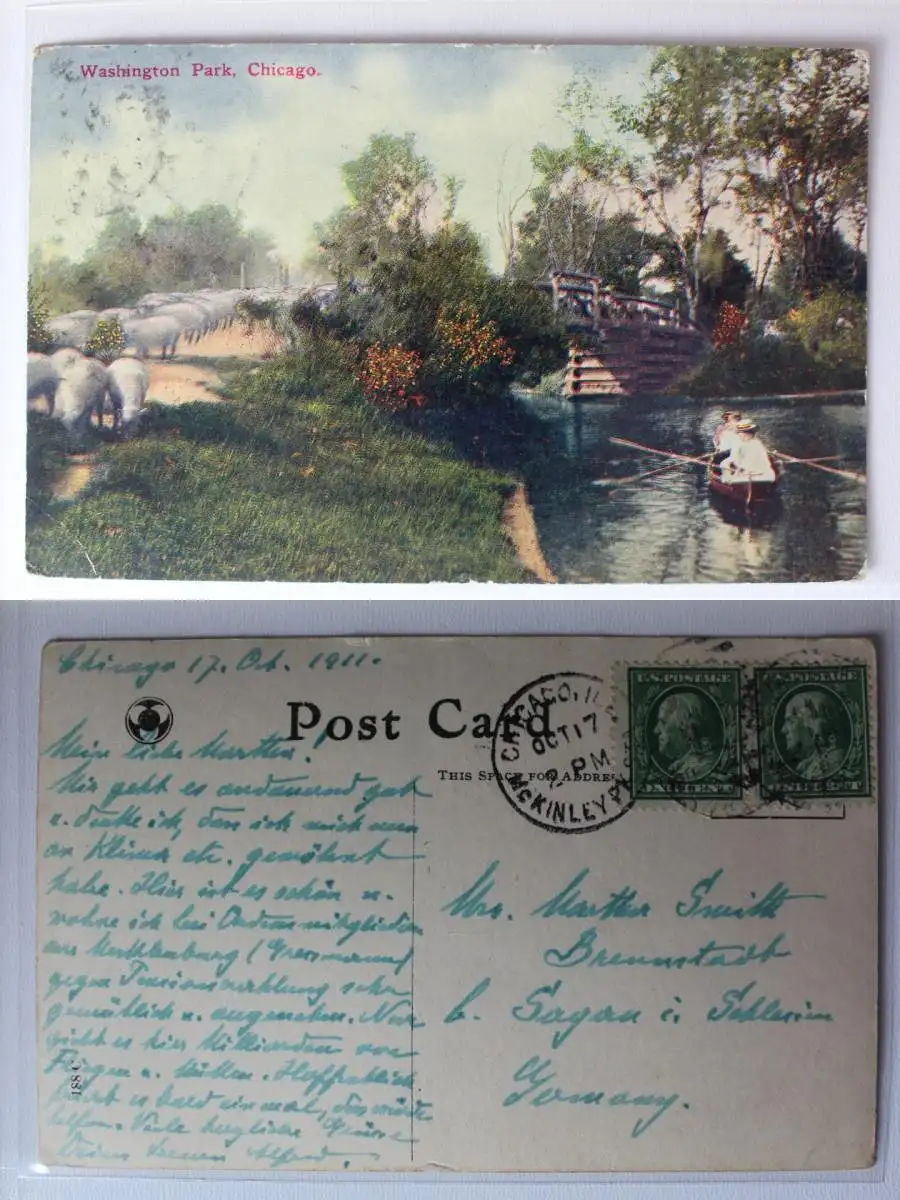 Washington Park, Chicago.
Chicago 17. Oct. 1911.
Post Card
THIS SPACE FOR ADDRES
CHICAGO, ILL
OCT 17
2 PM
MCKINLEY PK STA
U.S. POSTAGE
U.S. POSTAGE
Meine liebe Martha!
Mir geht es andauernd gut
u. denke ich, dass ich mich nun
an Klima etc. gewöhnt
habe. Hier ist es schön u.
wohne ich bei Ordensmitgliedern
aus Mecklenburg
gegen Pensionszahlung sehr
gemütlich u. angenehm. Nur
giebt es hier Milliarden von
Fliegen u. Mücken. Hoffentlich
es bald einmal, das würde
helfen. Viele herzliche Grüsse
Deines treuen Alfred.
188 C
Mrs. Martha Smith
Brennstadt
b. Sagan i. Schlesien
Germany.